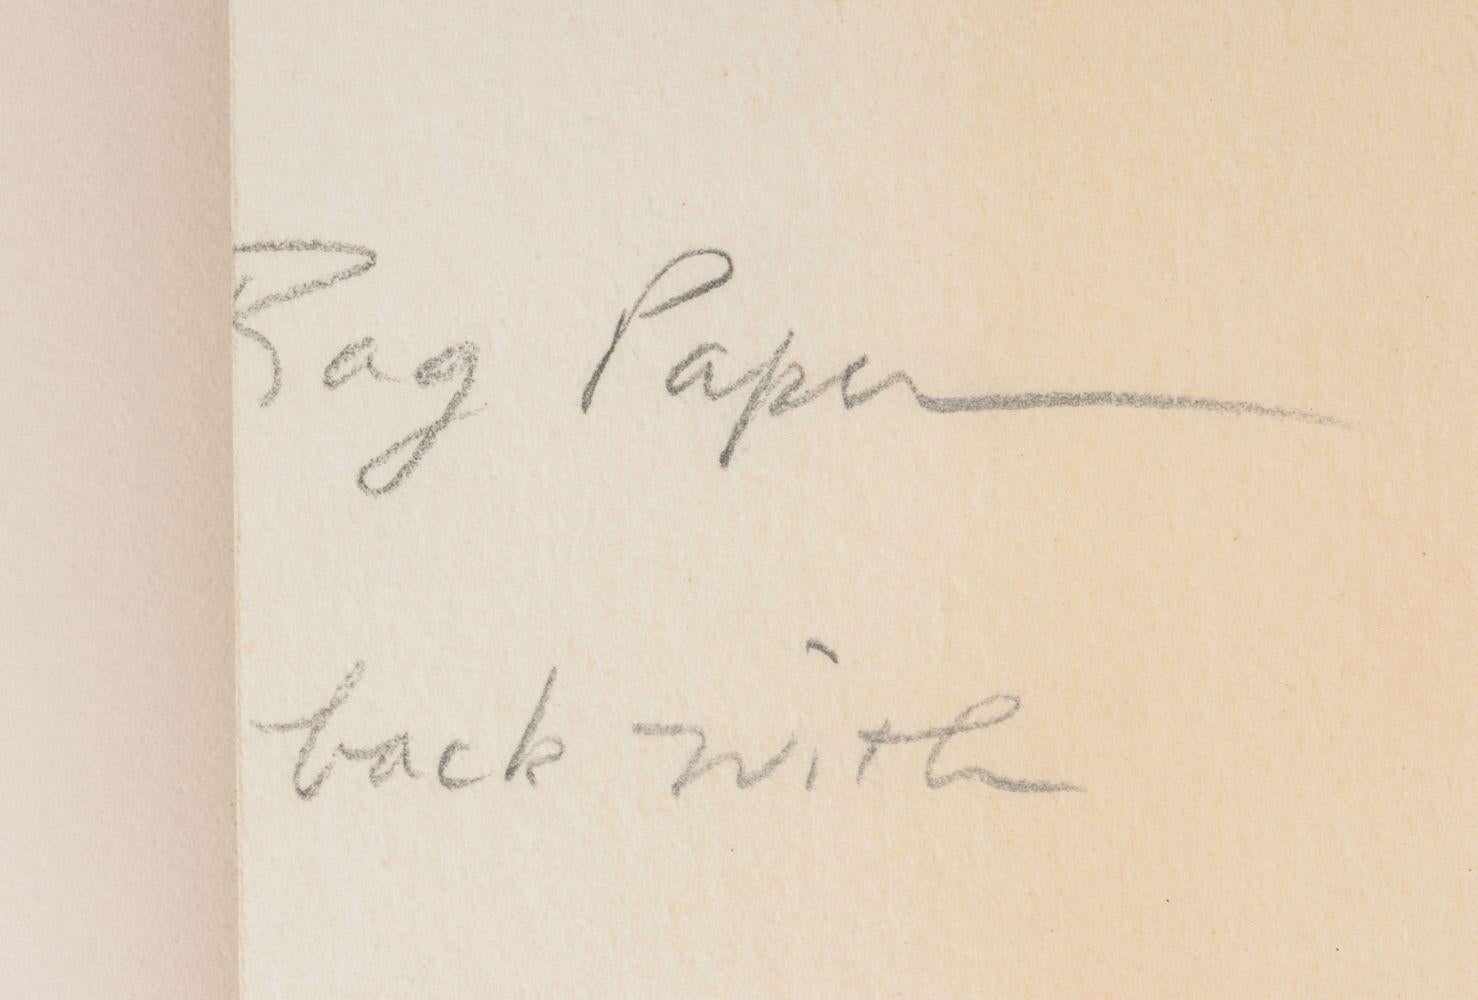 Rag Paper
back with